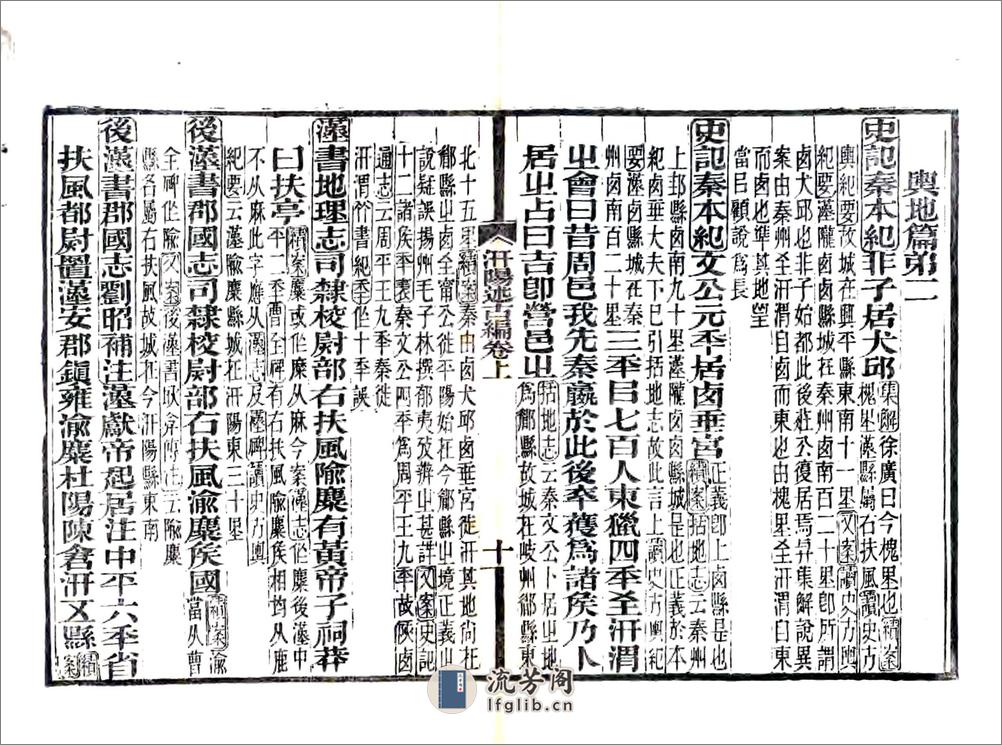 輿地篇弟二
史記秦本紀非子居犬邱
集解徐廣曰今槐里也續案
槐里漢縣屬右扶風讀史方
輿紀要故城在興平縣東南十一里又案讀史方輿
紀要漢隴西縣城在秦州西南百二十里卽所謂
西犬邱也非子始都此後莊公復居焉與集解說異
案由秦州至汧渭而東也由槐里至汧渭自東
而西也竝舉其地望
當㠯顧說爲長
史記秦本紀文公元年居西垂宮
正義卽上西縣是也
續案括地志云秦州
上邽縣西南九十里漢西縣城是也正義於本
紀西垂大夫已引括地志故此言上讀史方輿紀
要漢西縣城在秦
州西南百二十里
三年㠯七百人東獵四年至汧渭
之會曰昔周邑我先秦嬴於此後卒獲爲諸矦乃卜
居之占曰吉卽營邑之
括地志云秦文公卜居之地
爲郿縣故城在岐州郿縣東
汧陽述古編卷上
十
北十五里續案秦由西犬邱西垂宮徙汧其地尚在
郿縣之西至甯公徙平陽始在今郿縣之境正義之
說疑誤揚州毛子林撰郁夷攷辨之甚詳又案史記
十二諸矦年表秦文公四年爲周平王九年故陝西
通志云周平王九年秦徙
汧渭竹書紀年作十年誤
漢書地理志司隸校尉部右扶風隃麋有黃帝子祠莽
曰扶亭
續案麋或作糜从麻今案漢志作麋後漢中
平二年曹全碑有右扶風隃麋矦相均从鹿
不从麻此字應从漢碑讀史方輿
紀要云漢隃麋縣城在汧陽東三十里
後漢書郡國志司隸校尉部右扶風渝麋矦國
續案渝
當从曹
全碑作隃又案後漢書耿弇傳注云隃麋
縣名屬右扶風故城在今汧陽縣東南
後漢書郡國志劉昭補注漢獻帝起居注中平六年省
扶風都尉置漢安郡鎮雍渝麋杜陽陳倉汧五縣
續案
流芳阁
lfglib.cn